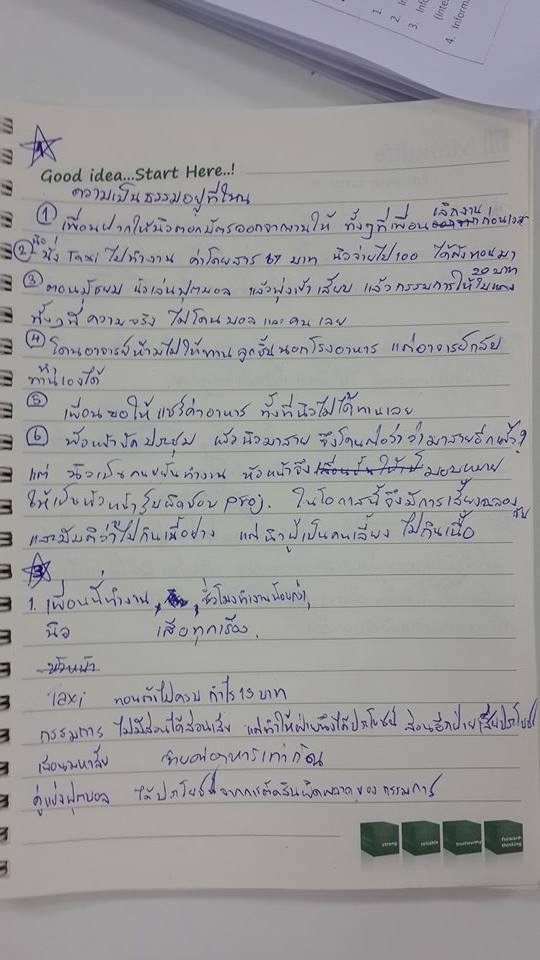 1.
2. In
3. Info
(Inte
4. Inform
1
Good idea...Start Here..!
ความเป็นธรรมอยู่ที่ไหน
① เพื่อนฝากให้นิวตอกบัตรออกจากงานให้ ทั้งๆที่เพื่อนเลิกงานก่อนเวลา
② นิวนั่ง Taxi ไปทำงาน ค่าโดยสาร 67 บาท นิวจ่ายไป 100 ได้ตังทอนมา 20 บาท
③ ตอนมัธยม นิวเล่นฟุตบอล แล้วพุ่งเข้าเสียบ แล้วกรรมการให้ใบแดง
ทั้งๆที่ความจริง ไม่โดนบอลและคนเลย
④ โดนอาจารย์ห้ามไม่ให้ทานลูกชิ้นนอกโรงอาหาร แต่อาจารย์กลับ
ทานเองได้
⑤ เพื่อนขอให้แชร์ค่าอาหาร ทั้งที่นิวไม่ได้ทานเลย
⑥ หัวหน้านัดประชุม แล้วนิวมาสาย จึงโดนต่อว่าว่ามาสายอีกแล้ว?
แต่ นิวเป็นคนขยันทำงาน หัวหน้าจึงมอบหมาย
ให้เป็นหัวหน้ารับผิดชอบ proj. ในโอกาสนี้จึงมีการเลี้ยงฉลองกัน
และมีมติว่าไปกินเนื้อย่าง แต่นิวผู้เป็นคนเลี้ยง ไม่กินเนื้อ
3
1. เพื่อนที่ทำงาน , ชั่วโมงทำงานน้อยกว่า,
นิว เสียทุกเรื่อง.
หัวหน้า
Taxi ทอนตังไม่ครบ กำไร 13 บาท
กรรมการ ไม่มีส่วนได้ส่วนเสีย แต่ทำให้ฝ่ายหนึ่งได้ประโยชน์ ส่วนอีกฝ่ายเสียประโยชน์
เพื่อนมหาลัย จ่ายค่าอาหารเท่ากัน
คู่แข่งฟุตบอล ได้ประโยชน์จากการตัดสินผิดพลาดของกรรมการ
strong
reliable
trustworthy
forward-thinking